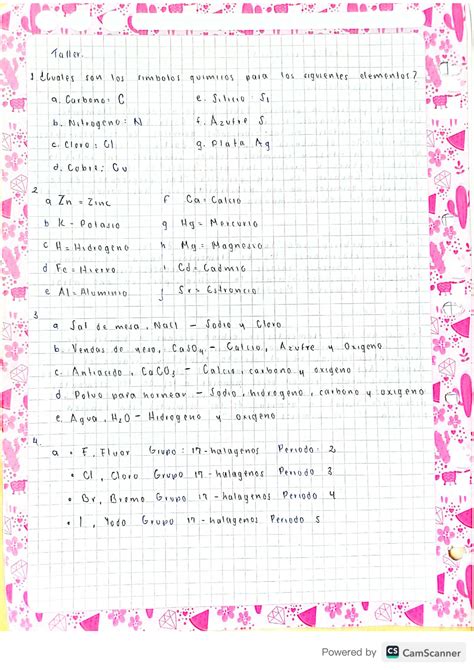 Taller.
1 ¿Cuales son los simbolos quimicos para los siguientes elementos?
a. Carbono: C e. Silicio: Si
b. Nitrogeno: N f. Azufre S
c. Cloro: Cl g. Plata Ag
d. Cobre: Cu
2
a Zn = Zinc f Ca = Calcio
b K - Potasio g Hg = Mercurio
c H = Hidrogeno h Mg = Magnesio
d Fe = Hierro i Cd = Cadmio
e Al = Aluminio j Sr = Estroncio
3
a Sal de mesa, Nacl - Sodio y Cloro
b. Vendas de yeso, CaSO4 - Calcio, Azufre y Oxigeno
c. Antiacido, CaCO3 - Calcio, carbono y oxigeno
d. Polvo para hornear - Sodio, hidrogeno, carbono y oxigeno
e. Agua, H2O - Hidrogeno y oxigeno
4.
a • F, Fluor Grupo: 17 - halagenos Periodo: 2
• Cl, Cloro Grupo 17 - halagenos Periodo 3
• Br, Bromo Grupo 17 - halagenos Periodo 4
• I, Yodo Grupo 17 - halagenos Periodo 5
Powered by CS CamScanner